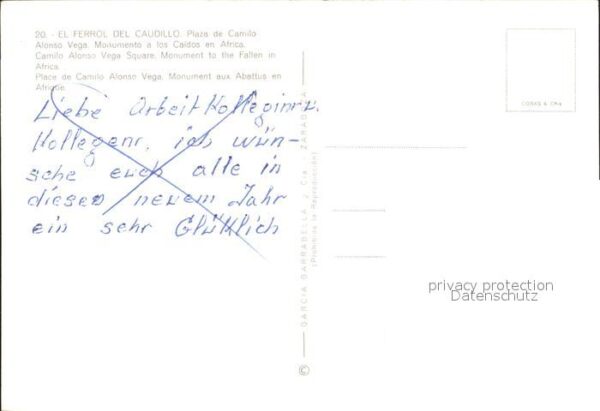 20. - EL FERROL DEL CAUDILLO. Plaza de Camilo
Alonso Vega. Monumento a los Caidos en Africa.
Camilo Alonso Vega Square. Monument to the Fallen in
Africa.
Place de Camilo Alonso Vega. Monument aux Abattus en
Afrique.
Liebe Arbeitkolleginn u.
Kollegenr. ich wün-
sche euch alle in
diesen neuem Jahr
ein sehr Glüklich
GARCIA GARRABELLA y Cia. - ZARAGOZA
(Prohibida la Reproducción)
©
privacy protection
Datenschutz